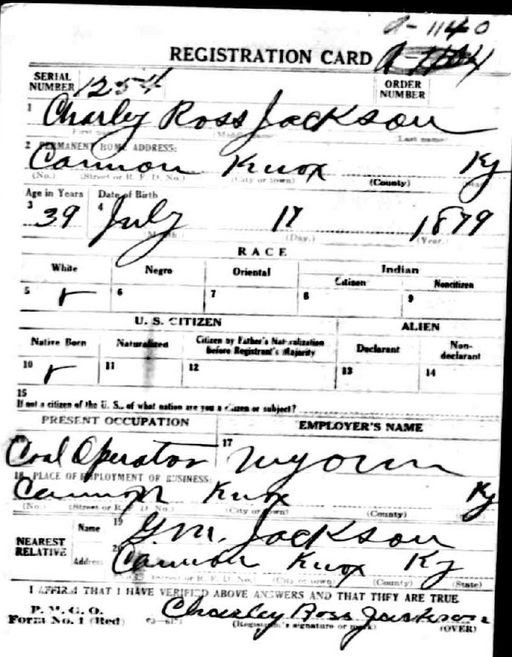 A-1140
REGISTRATION CARD
SERIAL NUMBER 1254 ORDER NUMBER
1 Charley Ross Jackson
First name Middle name Last name
2 PERMANENT HOME ADDRESS:
Cannon Knox Ky
(No.) (Street or R. F. D. No.) (City or town) (County) State
Age in Years Date of Birth
3 39 4 July 17 1879
(Month.) (Day.) (Year.)
RACE
White Negro Oriental Indian
Citizen Noncitizen
5 6 7 8 9
U. S. CITIZEN ALIEN
Native Born Naturalized Citizen by Father's Naturalization before Registrant's Majority Declarant Non-declarant
10 11 12 13 14
15
If not a citizen of the U. S., of what nation are you a citizen or subject?
PRESENT OCCUPATION EMPLOYER'S NAME
Coal Operator 17 My own
18 PLACE OF EMPLOYMENT OR BUSINESS:
Cannon Knox Ky
(No.) (Street or R. F. D. No.) (City or town) (County)
NEAREST RELATIVE Name 19 G.M. Jackson
Address 20 Cannon Knox Ky
(Street or R. F. D. No.) (City or town) (County) (State)
I AFFIRM THAT I HAVE VERIFIED ABOVE ANSWERS AND THAT THEY ARE TRUE
P. M. G. O.
Form No. 1 (Red) Charley Ross Jackson
(Registrant's signature or mark) (OVER)